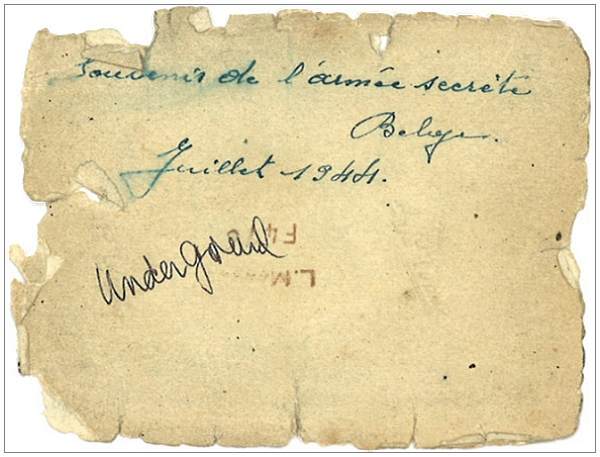 Souvenir de l'armée secrète
Belge.
Juillet 1944.
Undergound